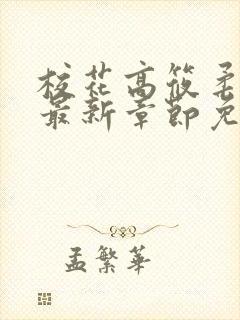 校花高筱柔
最新章节免
孟繁华